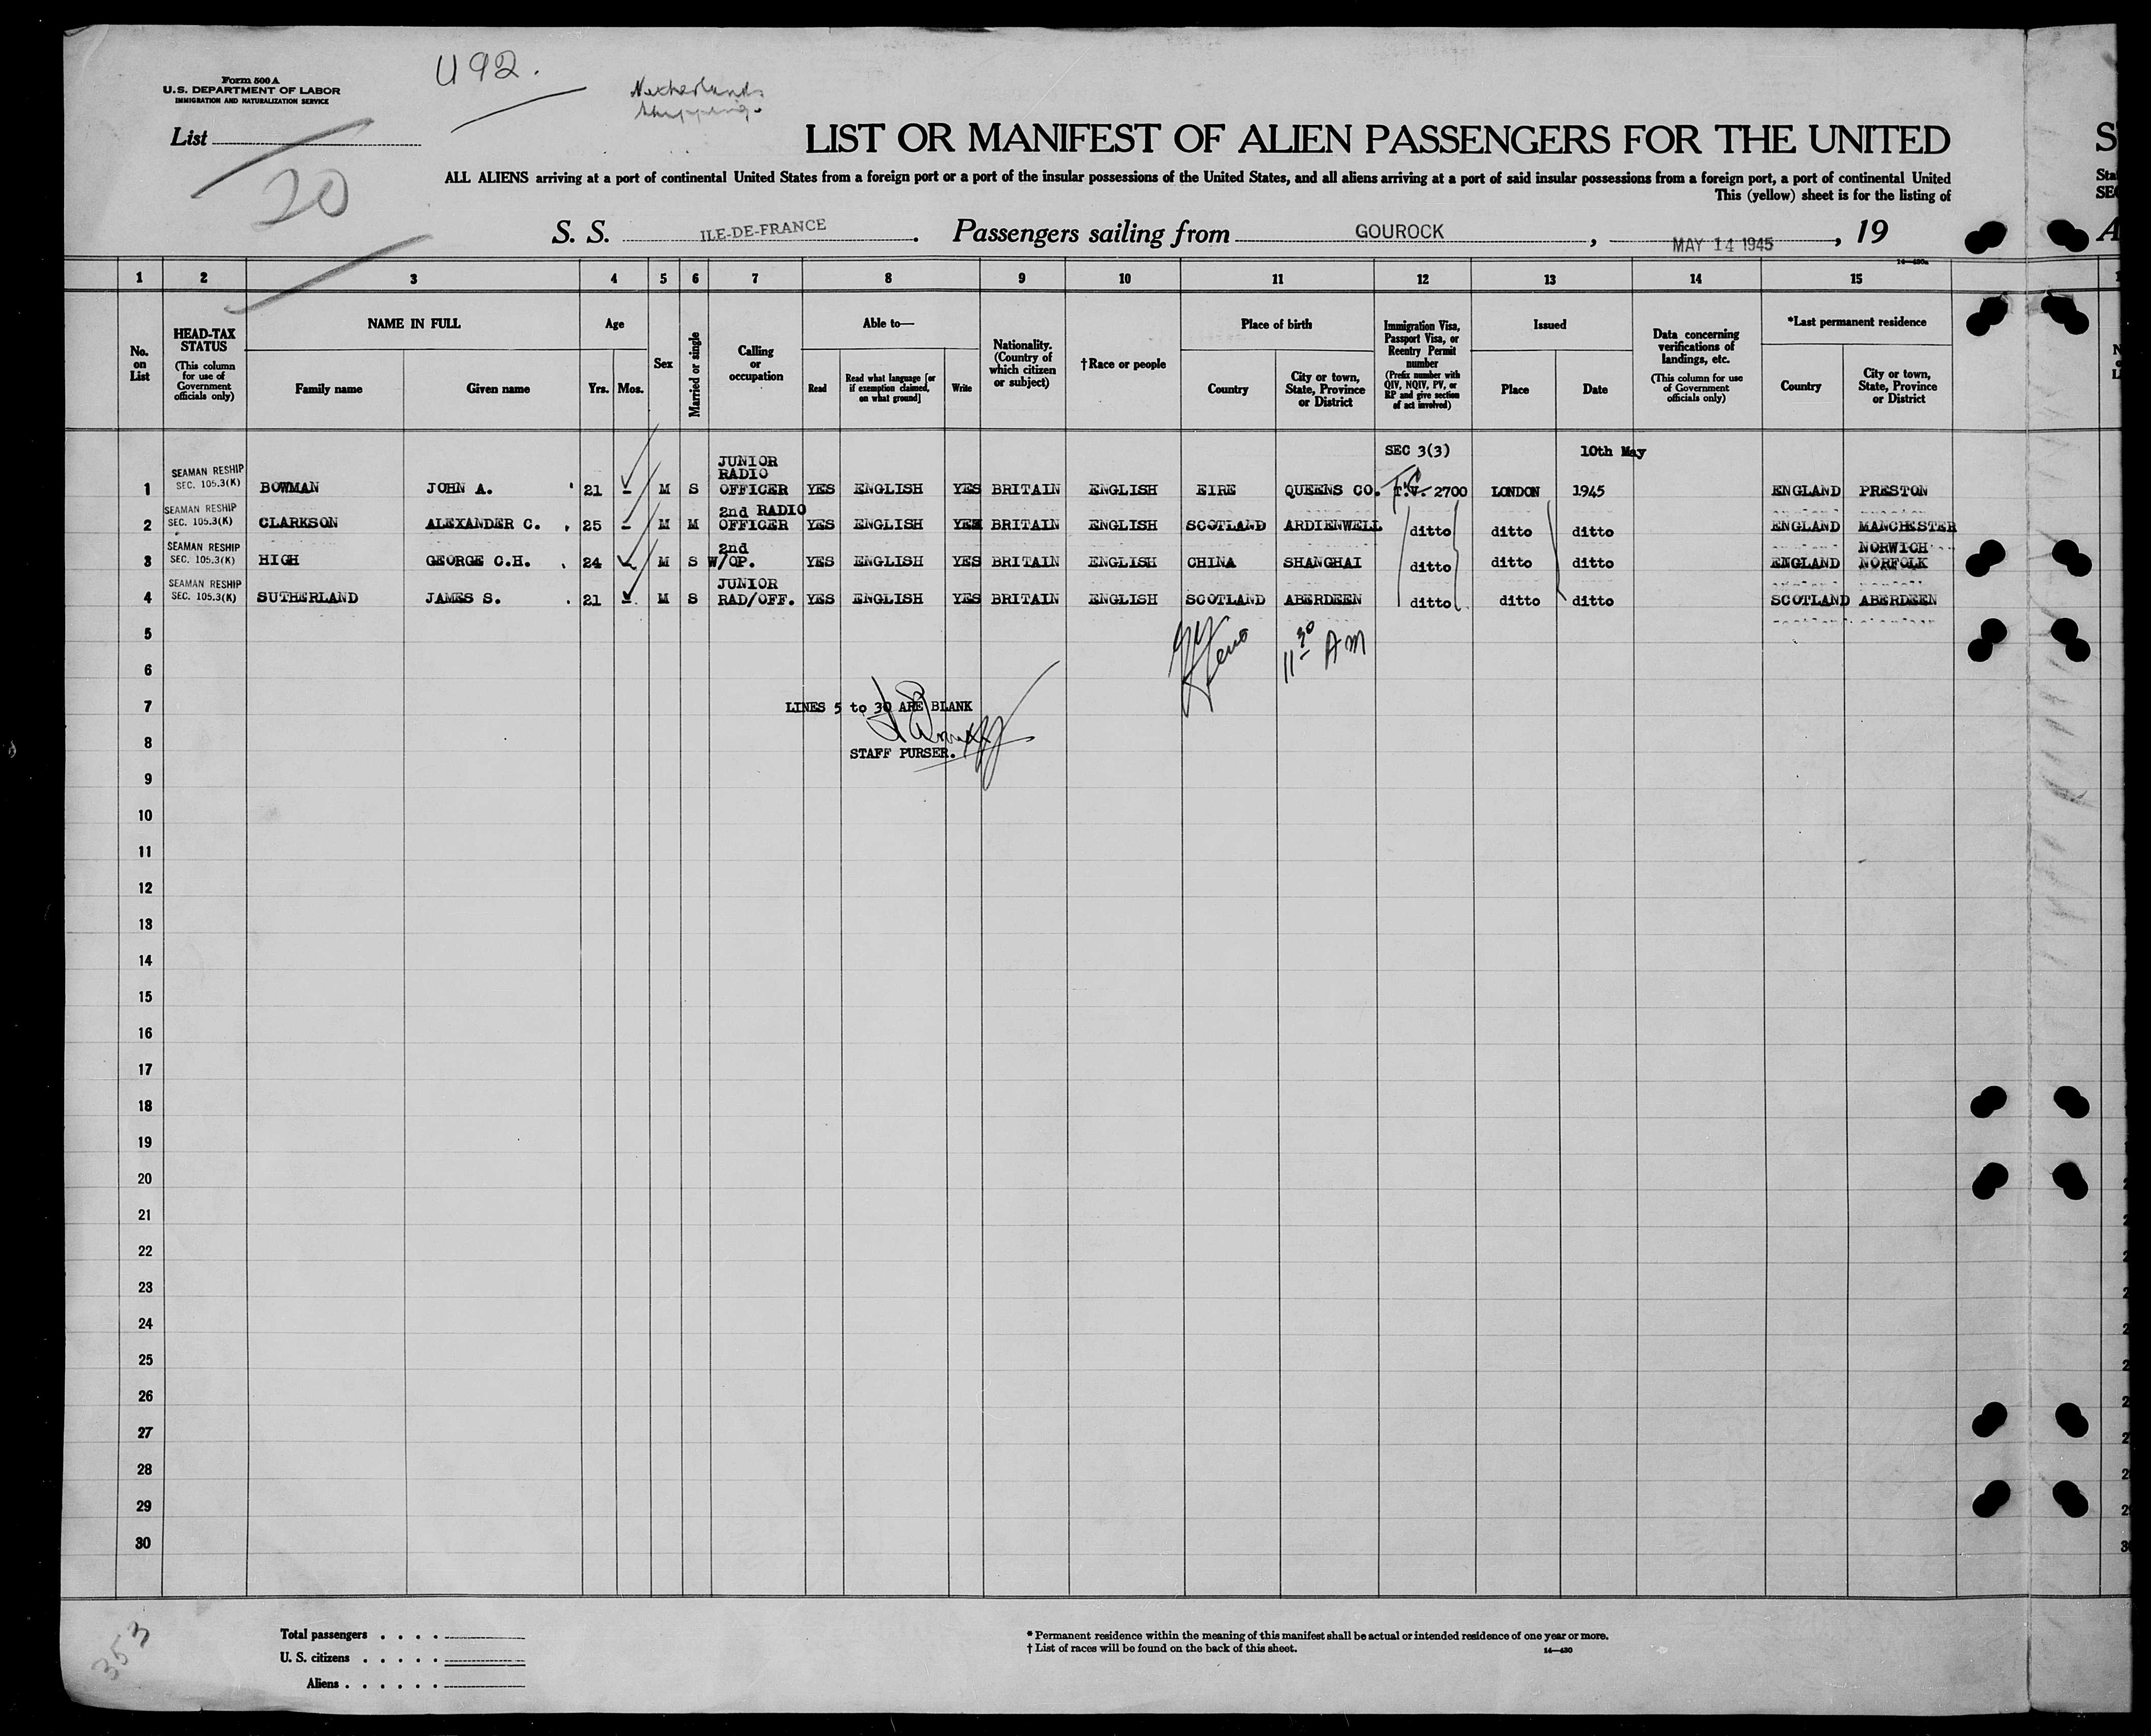 U92.
Netherlands
Shipping.
Form 500 A
U.S. DEPARTMENT OF LABOR
IMMIGRATION AND NATURALIZATION SERVICE
List
20
LIST OR MANIFEST OF ALIEN PASSENGERS FOR THE UNITED
ALL ALIENS arriving at a port of continental United States from a foreign port or a port of the insular possessions of the United States, and all aliens arriving at a port of said insular possessions from a foreign port, a port of continental United
This (yellow) sheet is for the listing of
S. S. ILE-DE-FRANCE. Passengers sailing from GOUROCK, MAY 14 1945, 19
1 2 3 4 5 6 7 8 9 10 11 12 13 14 15
No. on List
HEAD-TAX STATUS (This column for use of Government officials only)
NAME IN FULL
Family name Given name
Age
Yrs. Mos.
Sex
Married or single
Calling or occupation
Able to—
Read Read what language [or if exemption claimed, on what ground] Write
Nationality. (Country of which citizen or subject)
†Race or people
Place of birth
Country City or town, State, Province or District
Immigration Visa, Passport Visa, or Reentry Permit number (Prefix number with QIV, NQIV, PV, or RP and give section of act involved)
Issued
Place Date
Data concerning verifications of landings, etc. (This column for use of Government officials only)
*Last permanent residence
Country City or town, State, Province or District
SEC 3(3) 10th May
1 SEAMAN RESHIP SEC. 105.3(K) BOWMAN JOHN A. 21 - M S JUNIOR RADIO OFFICER YES ENGLISH YES BRITAIN ENGLISH EIRE QUEENS CO. T.V. 2700 LONDON 1945 ENGLAND PRESTON
2 SEAMAN RESHIP SEC. 105.3(K) CLARKSON ALEXANDER C. 25 - M M 2nd RADIO OFFICER YES ENGLISH YES BRITAIN ENGLISH SCOTLAND ARDIENWELL ditto ditto ditto ENGLAND MANCHESTER
3 SEAMAN RESHIP SEC. 105.3(K) HIGH GEORGE C.H. 24 - M S 2nd W/OP. YES ENGLISH YES BRITAIN ENGLISH CHINA SHANGHAI ditto ditto ditto ENGLAND NORWICH NORFOLK
4 SEAMAN RESHIP SEC. 105.3(K) SUTHERLAND JAMES S. 21 - M S JUNIOR RAD/OFF. YES ENGLISH YES BRITAIN ENGLISH SCOTLAND ABERDEEN ditto ditto ditto SCOTLAND ABERDEEN
5
11 30 AM
6
7 LINES 5 to 30 ARE BLANK
8 STAFF PURSER.
9
10
11
12
13
14
15
16
17
18
19
20
21
22
23
24
25
26
27
28
29
30
353
Total passengers . . . .
U. S. citizens . . . . .
Aliens . . . . . .
* Permanent residence within the meaning of this manifest shall be actual or intended residence of one year or more.
† List of races will be found on the back of this sheet. 14—430